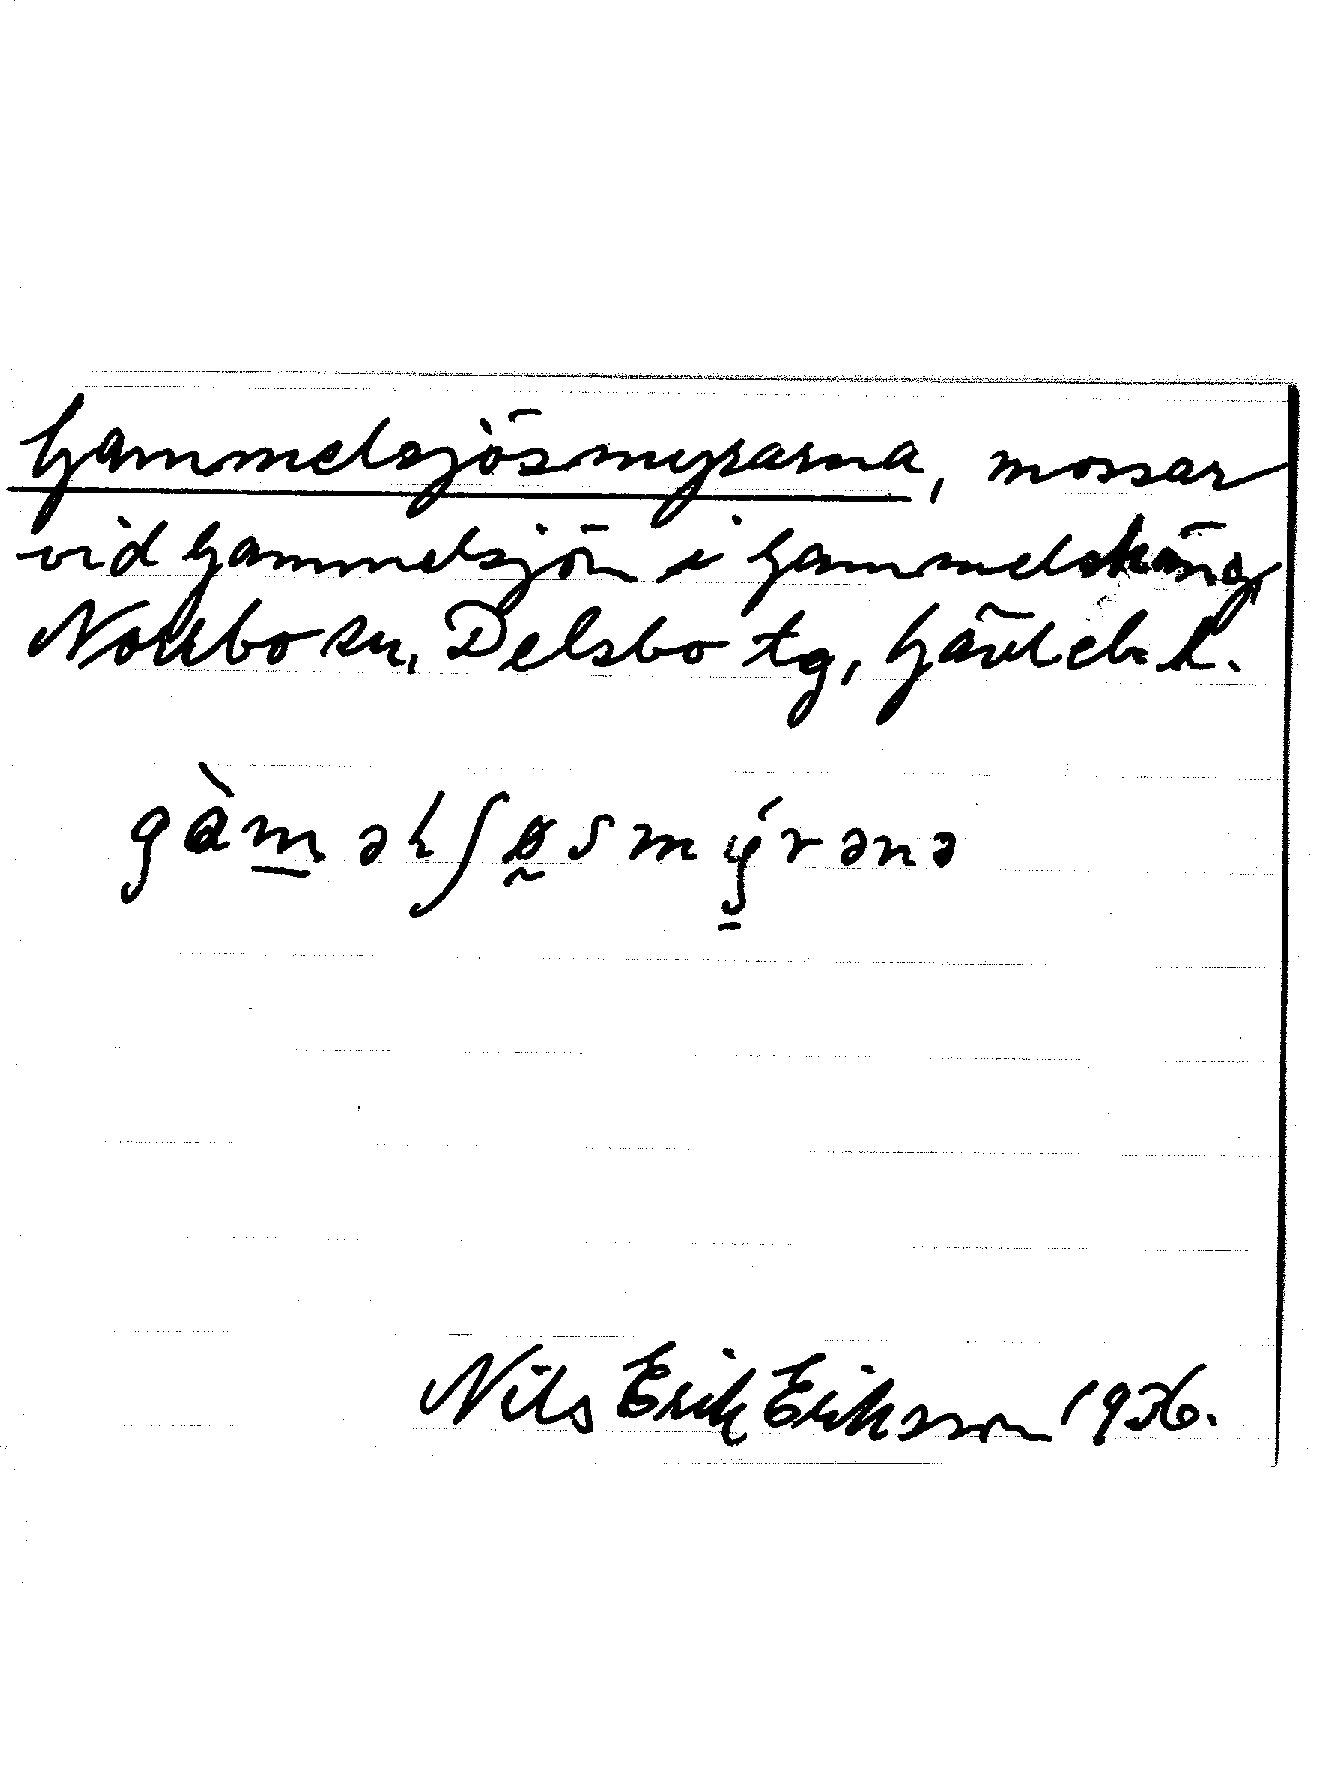 Gammelsjösmyrarna, mossar
vid Gammelsjön i Gammelsträng,
Norrbo sn, Delsbo tg, Gävleb. l.
gàməlʃøsmýrənə
Nils Erik Eriksson 1936.